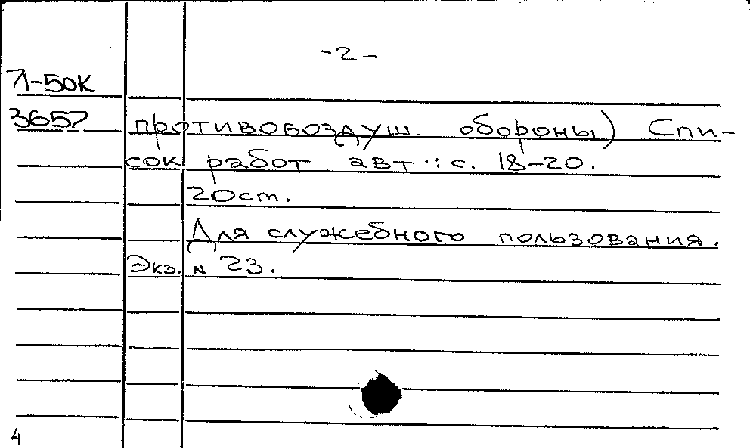 -2-
Л-50К
3657 противовоздуш. обороны) Спи-
сок работ авт.: с. 18-20.
20см.
Для служебного пользования.
Экз. № 23.
4